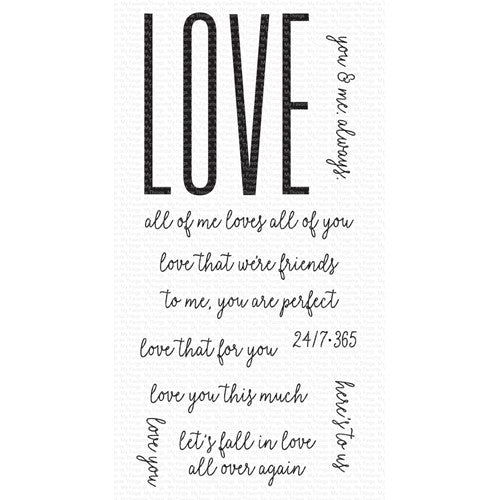 LOVE
you & me, always.
all of me loves all of you
love that we're friends
to me, you are perfect
love that for you
24/7•365
love you this much
here's to us
love you
let's fall in love
all over again